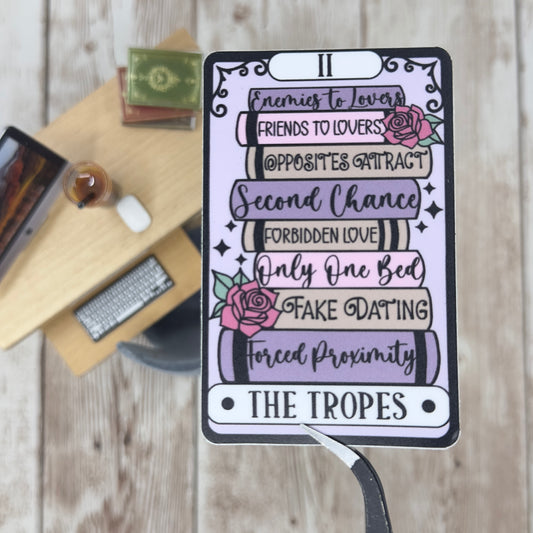 II
Enemies to Lovers
FRIENDS TO LOVERS
OPPOSITES ATTRACT
Second Chance
FORBIDDEN LOVE
Only One Bed
FAKE DATING
Forced Proximity
THE TROPES